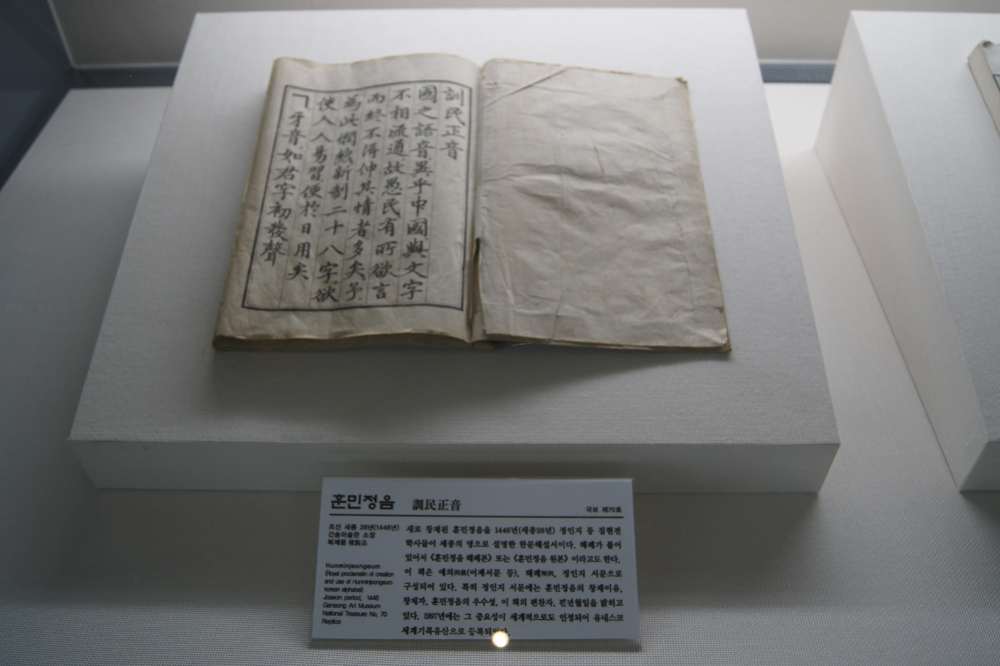 訓民正音
國之語音異乎中國與文字
不相流通故愚民有所欲言
而終不得伸其情者多矣予
為此憫然新制二十八字欲
使人人易習便於日用矣
ㄱ牙音如君字初發聲
훈민정음 訓民正音 국보 제70호
조선 세종 28년(1446년)
간송미술관 소장
복제품 複製品
Hunminjeongeum
(Royal proclamatin of creation
and use of Hunminjeongeum
korean alphabet)
Joseon period, 1446
Gansong Art Museum
National Treasure No. 70
Replica
새로 창제된 훈민정음을 1446년(세종28년) 정인지 등 집현전
학사들이 세종의 명으로 설명한 한문해설서이다. 해례가 붙어
있어서 《훈민정음 해례본》 또는 《훈민정음 원본》 이라고도 한다.
이 책은 예의(어제서문 등), 해례, 정인지 서문으로
구성되어 있다. 특히 정인지 서문에는 훈민정음의 창제이유,
창제자, 훈민정음의 우수성, 이 책의 편찬자, 편년월일을 밝히고
있다. 1997년에는 그 중요성이 세계적으로도 인정되어 유네스코
세계기록유산으로